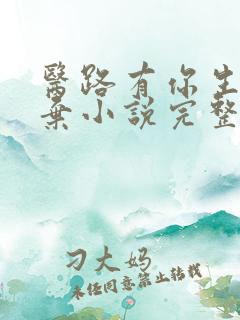 醫路有你生
棄小說完整
刁大妈
未经同意禁止转载